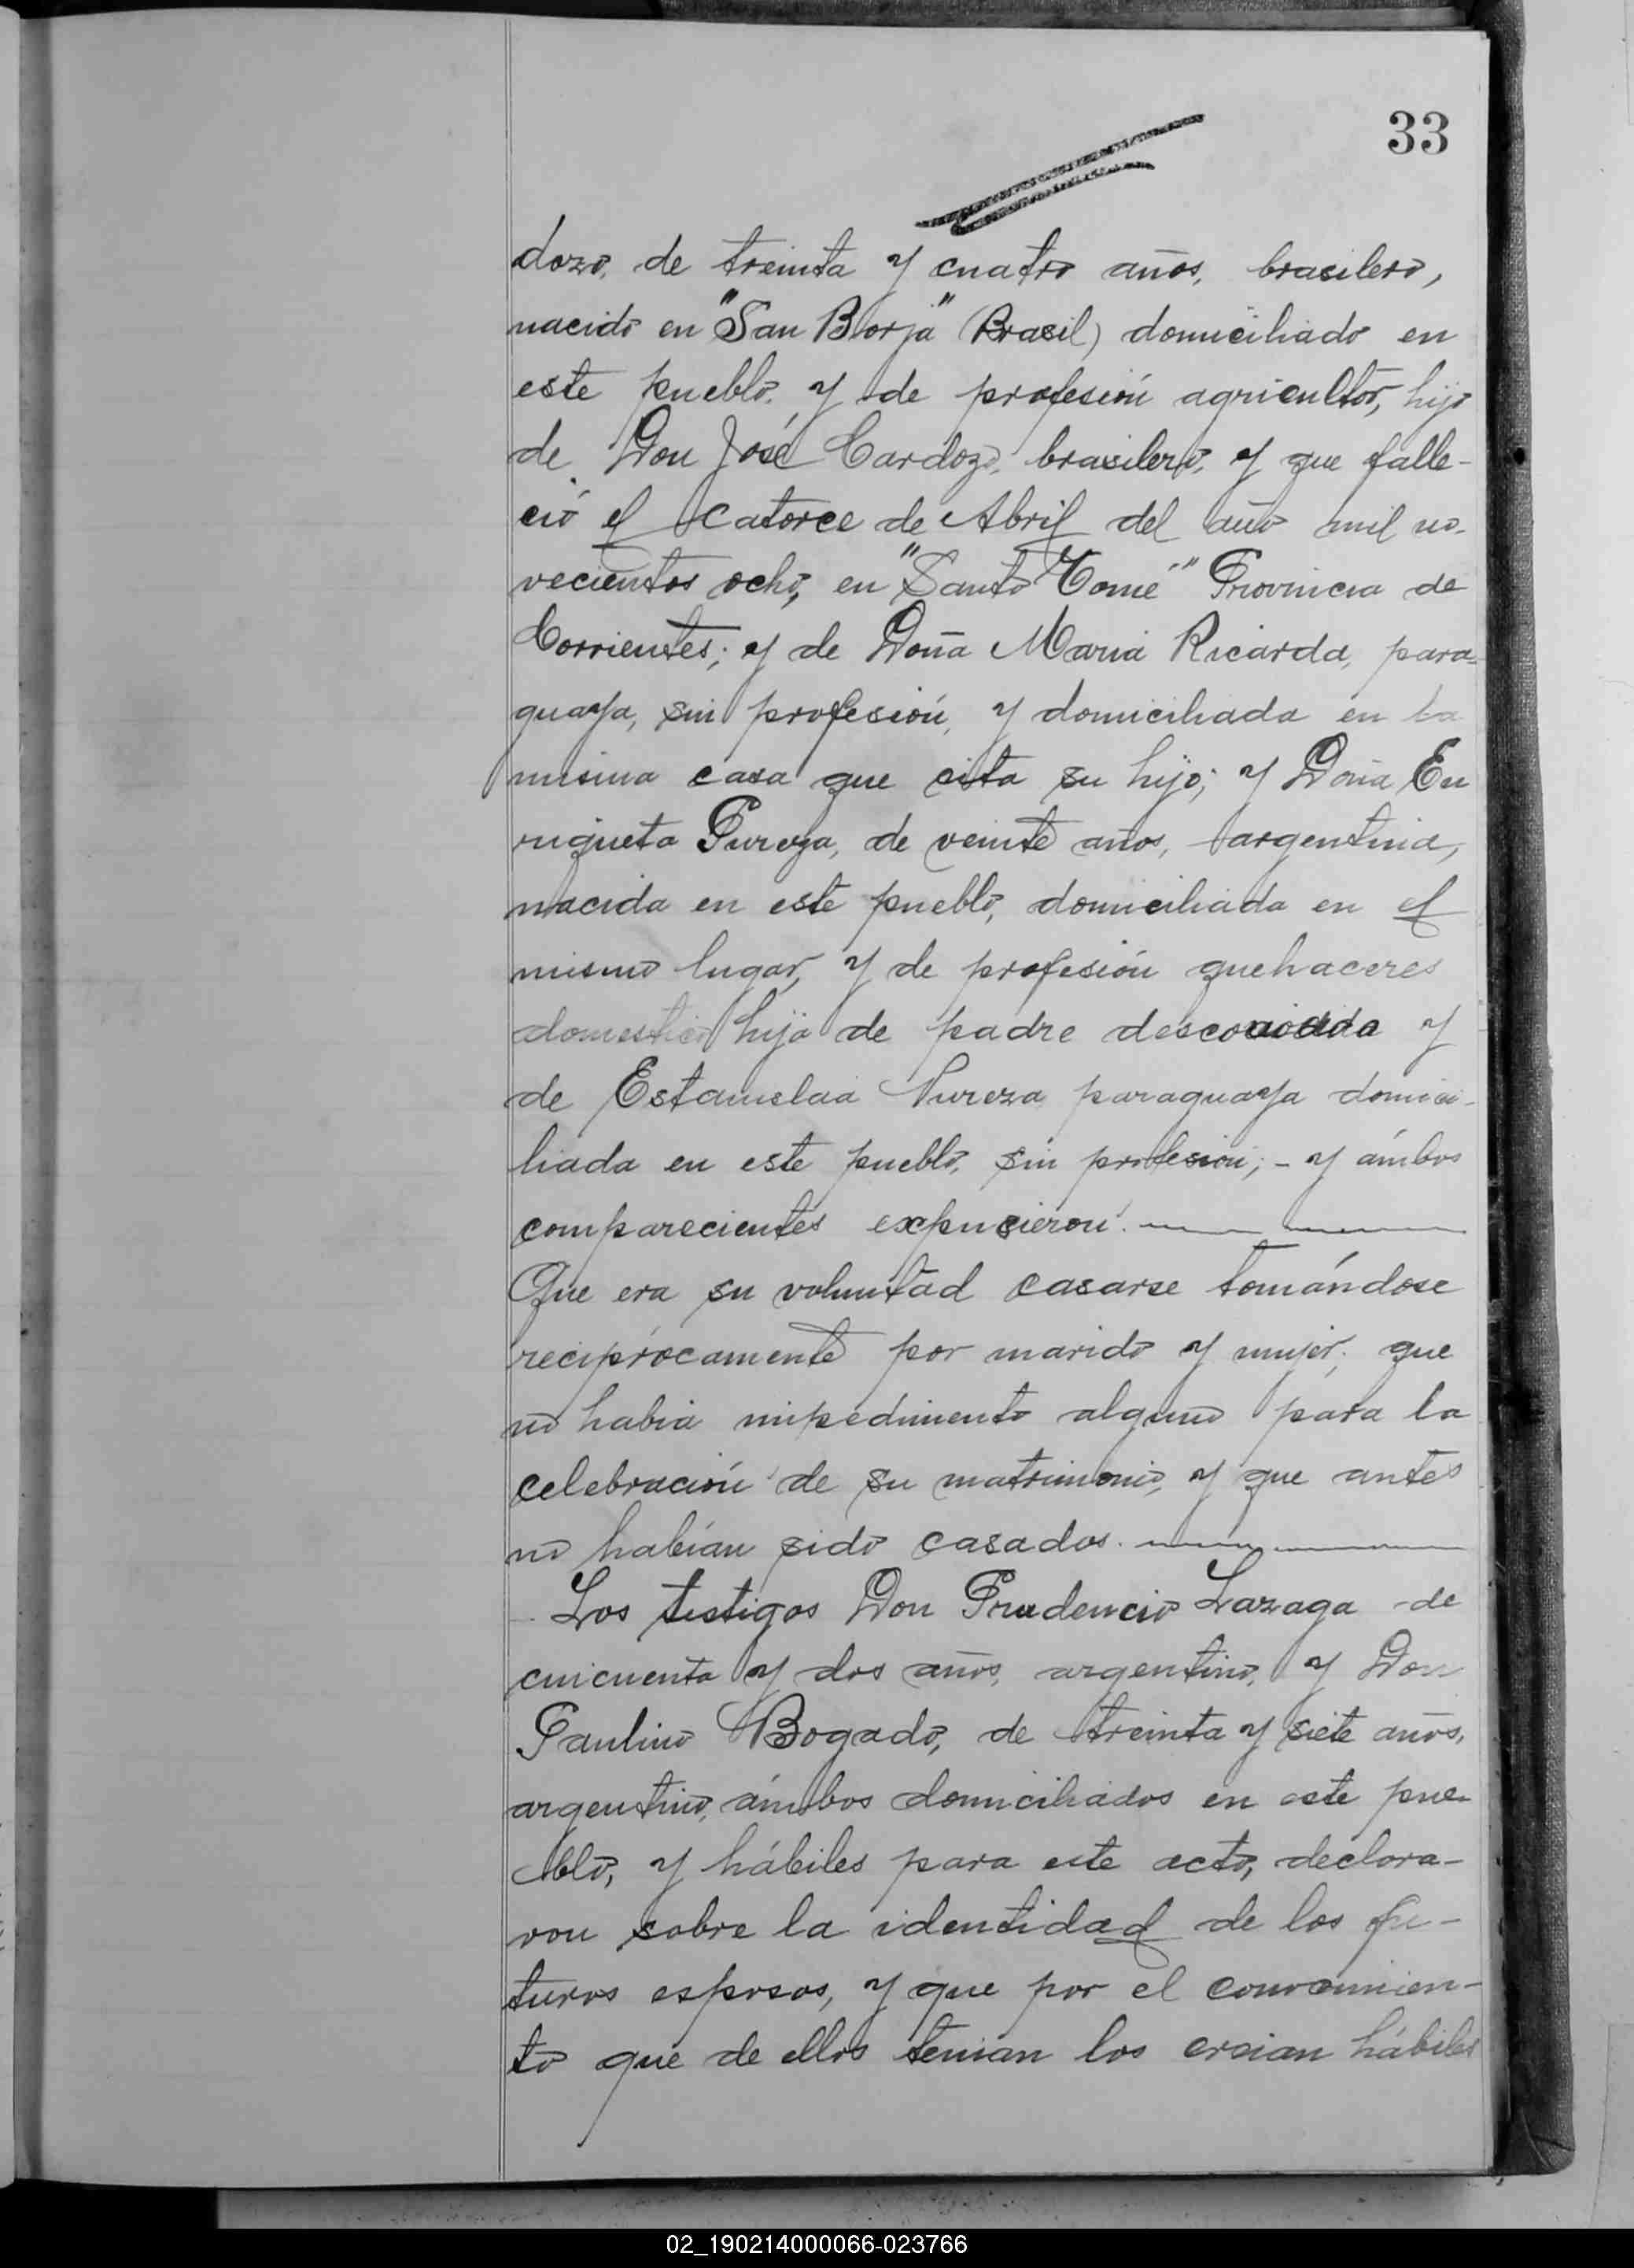 33
dozo, de treinta y cuatro años, brasilero,
nacido en "San Borja" (Brasil) domiciliado en
este pueblo, y de profesión agricultor, hijo
de Don José Cardozo, brasilero, y que falle-
ció el catorce de Abril del año mil no-
vecientos ocho, en "Santo Tomé" Provincia de
Corrientes; y de Doña Maria Ricarda, para-
guaya, sin profesión, y domiciliada en la
misma casa que cita su hijo; y Doña En
riqueta Pureza, de veinte años, argentina,
nacida en este pueblo, domiciliada en el
mismo lugar, y de profesión quehaceres
domestico hija de padre desconocido y
de Estanislaa Pureza paraguaya domici-
liada en este pueblo, sin profesión; - y ámbos
comparecientes expusieron:
Que era su voluntad casarse tomándose
recíprocamente por marido y mujer; que
no habia impedimento alguno para la
celebración de su matrimonio, y que antes
no habían sido casados.
Los testigos Don Prudencio Lazaga de
cincuenta y dos años, argentino, y Don
Paulino Bogado, de treinta y siete años,
argentino, ámbos domiciliados en este pue-
blo, y hábiles para este acto, declara-
ron sobre la identidad de los fu-
turos esposos, y que por el conocimien-
to que de ellos tenian los creian hábiles
02_190214000066-023766